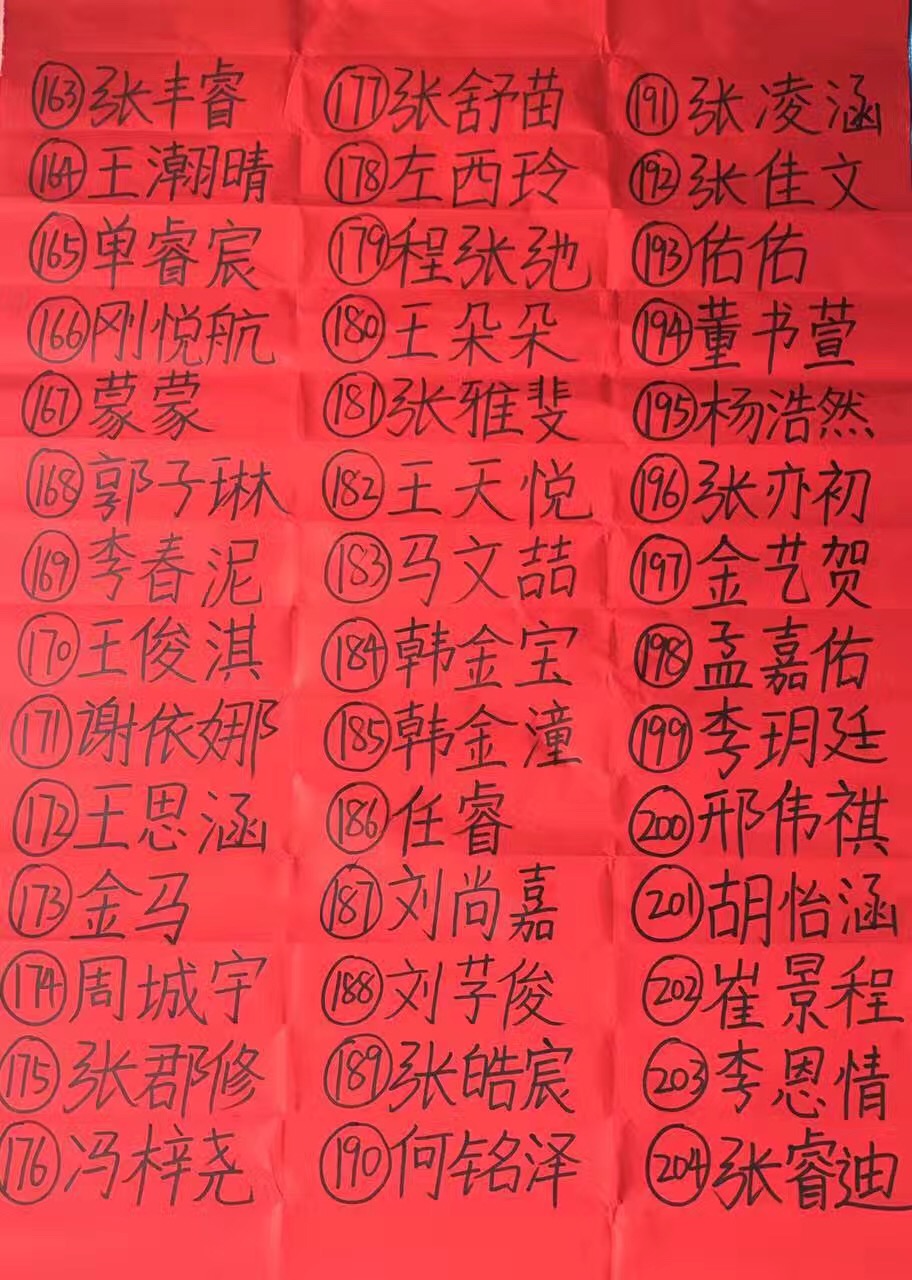 163 张丰睿
164 王潮晴
165 单睿宸
166 刚悦航
167 蒙蒙
168 郭子琳
169 李春泥
170 王俊淇
171 谢依娜
172 王思涵
173 金马
174 周城宇
175 张郡修
176 冯梓尧
177 张舒苗
178 左西玲
179 程张弛
180 王朵朵
181 张雅斐
182 王天悦
183 马文喆
184 韩金宝
185 韩金潼
186 任睿
187 刘尚嘉
188 刘芓俊
189 张皓宸
190 何铭泽
191 张凌涵
192 张佳文
193 佑佑
194 董书萱
195 杨浩然
196 张亦初
197 金艺贺
198 孟嘉佑
199 李玥廷
200 邢伟祺
201 胡怡涵
202 崔景程
203 李恩情
204 张睿迪